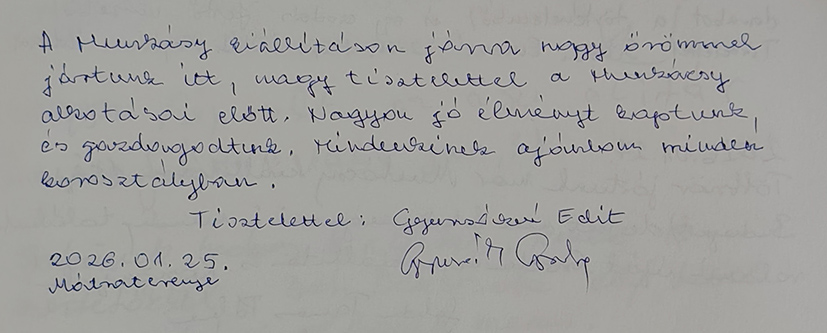 A Munkásy kiállításon járva nagy örömmel
jártunk itt, nagy tisztelettel a Munkácsy
alkotásai előtt. Nagyon jó élményt kaptunk,
és gazdagodtunk. Mindenkinek ajánlom minden
korosztályban.
Tisztelettel: Edit
2026.01.25.
Mátraterenye